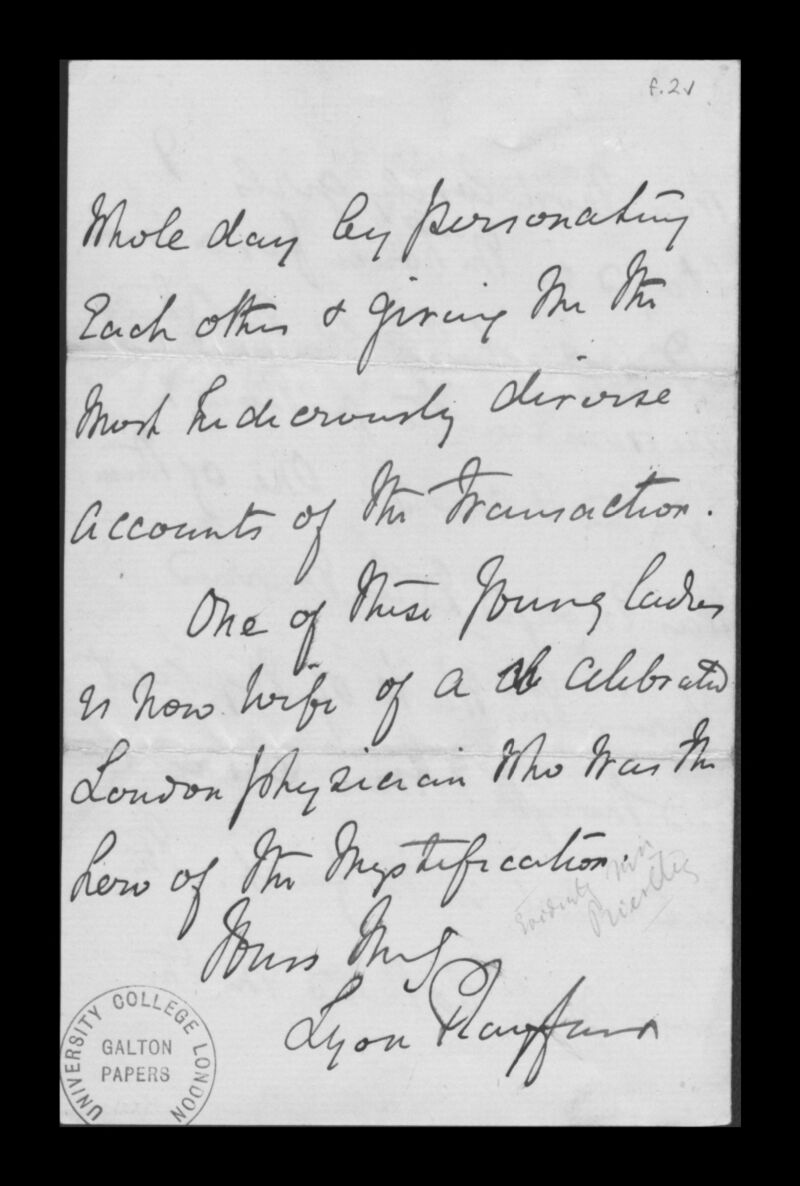 f.2v
Whole day by personating
Each other & giving me the
Most Ludicrously diverse
accounts of the transaction.
One of these young ladies
is now wife of a celebrated
London physician who was the
hero of the Mystification.
Evidently Mrs
Priestley
Yours truly
Lyon Playfair
UNIVERSITY COLLEGE LONDON
GALTON
PAPERS